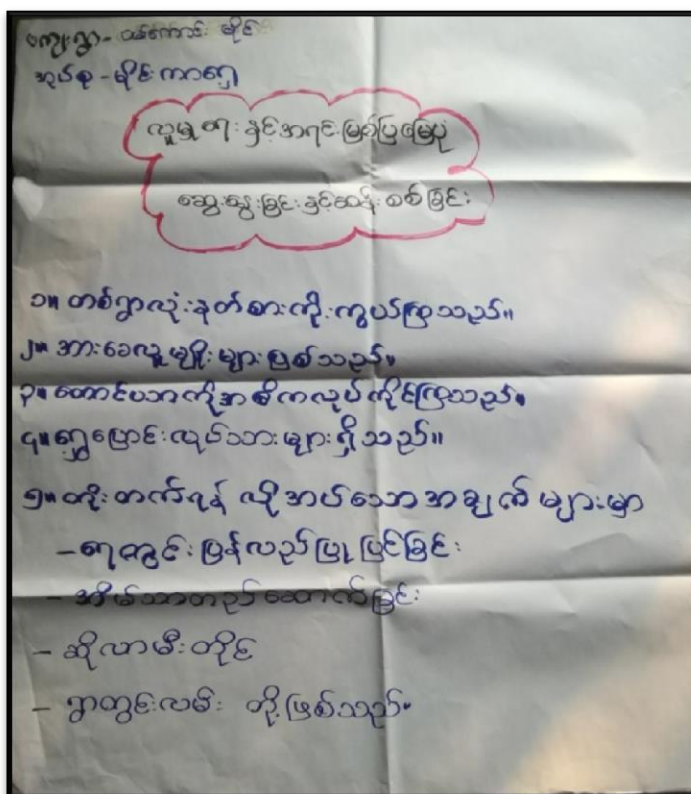 ကျေးရွာ - ပင်ကောင်း မိုင်း
အုပ်စု - မိုင်းကာရှေ့
လူမှုရေး နှင့်အရင်းမြစ်ပြမြေပုံ
ဆွေးနွေးခြင်းနှင့်ဆန်းစစ်ခြင်း
၁။ တစ်ရွာလုံးနတ်စားကိုးကွယ်ကြသည်။
၂။ အားခေလူမျိုးများဖြစ်သည်။
၃။ တောင်ယာကိုအဓိကလုပ်ကိုင်ကြသည်။
၄။ ရွှေ့ပြောင်းလုပ်သားများရှိသည်။
၅။ တိုးတက်ရန် လိုအပ်သောအချက်များမှာ
- ရေတွင်းပြန်လည်ပြုပြင်ခြင်း
- အိမ်သာတည်ဆောက်ခြင်း
- ဆိုလာမီးတိုင်
- ရွာတွင်းလမ်း တို့ဖြစ်သည်။